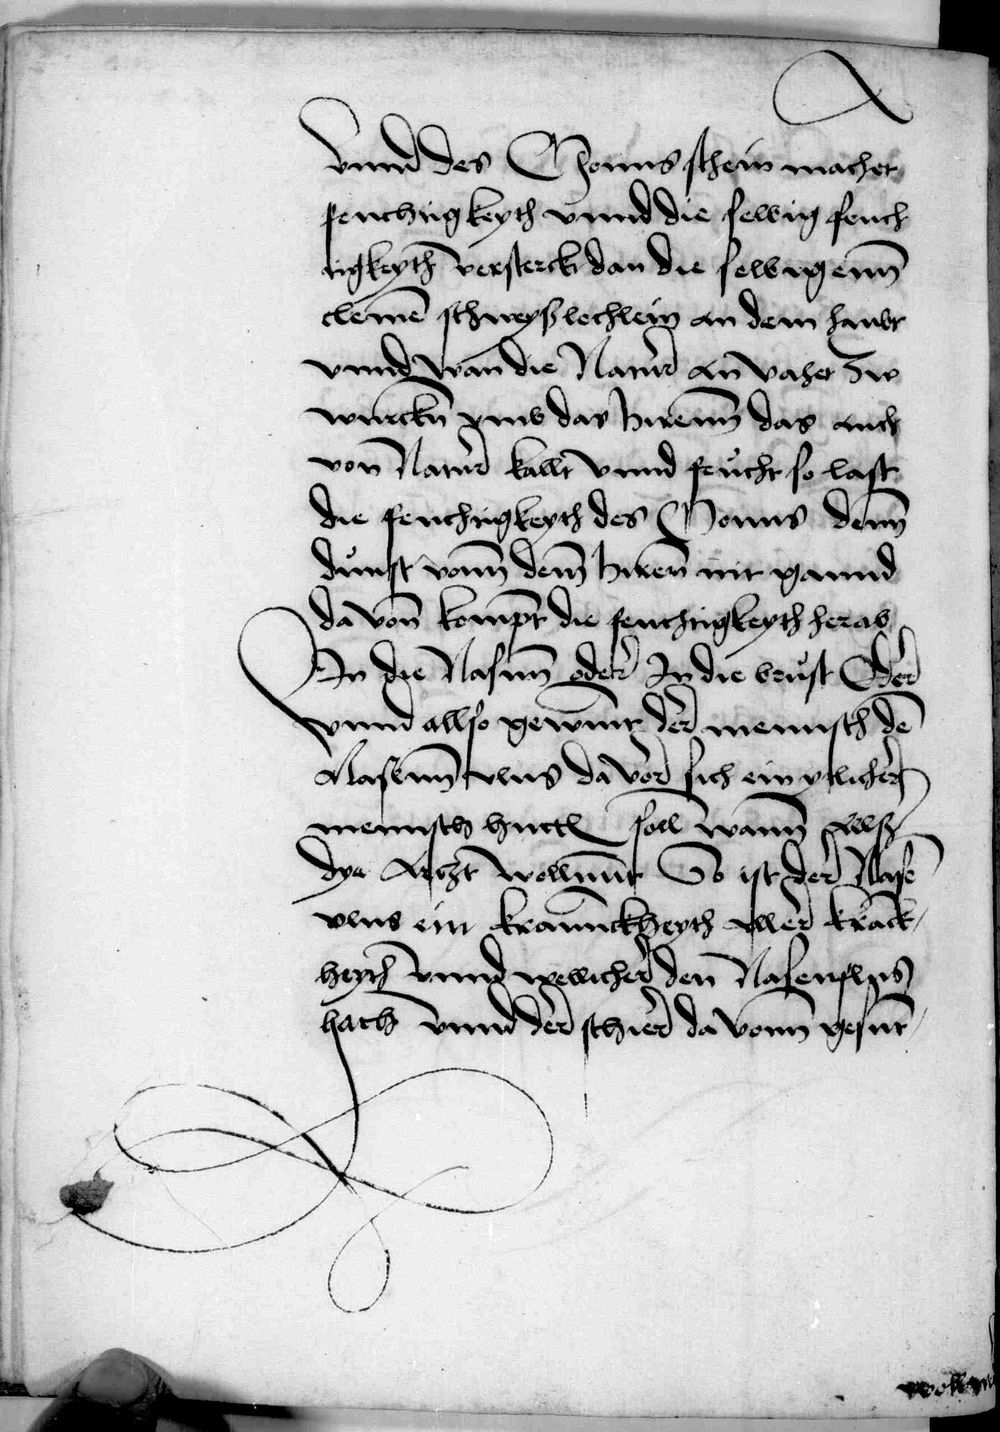 vnnd des Monns schein machet
feuchtigkeyth vnnd die selbig feuch
tigkeyth versterck dan die selbigenn
cleinē schweyßlechlein an dem haubt
vnnd wan die Natur an vahet Zw
wurckn̄ vmb das hirenn das auch
von Natur kallt vnnd feucht so last
die feuchtigkeyth des Monns denn
dunst vonn dem hiren nit gannd
da von kompt die feuchtigkeyth herab
In die Nasnn oder In die brust Oder
vnnd allso gewint der mennsch dē
Nasenn vlus da vor sich ein ytlicher
mennsch huttn soll wann alls
dye Artzt wollennt So ist der Nasē
vlus ein kranncklheyth aller kranck
heyth vnnd wellicher den Nasenflus
hatth vnnd der schier da vonn gesunt
wollen